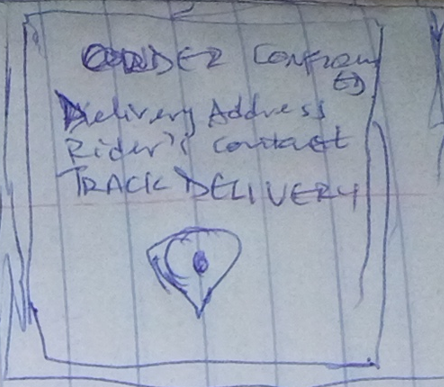 ORDER CONFIRM
ED
Delivery Address
Rider's Contact
TRACK DELIVERY